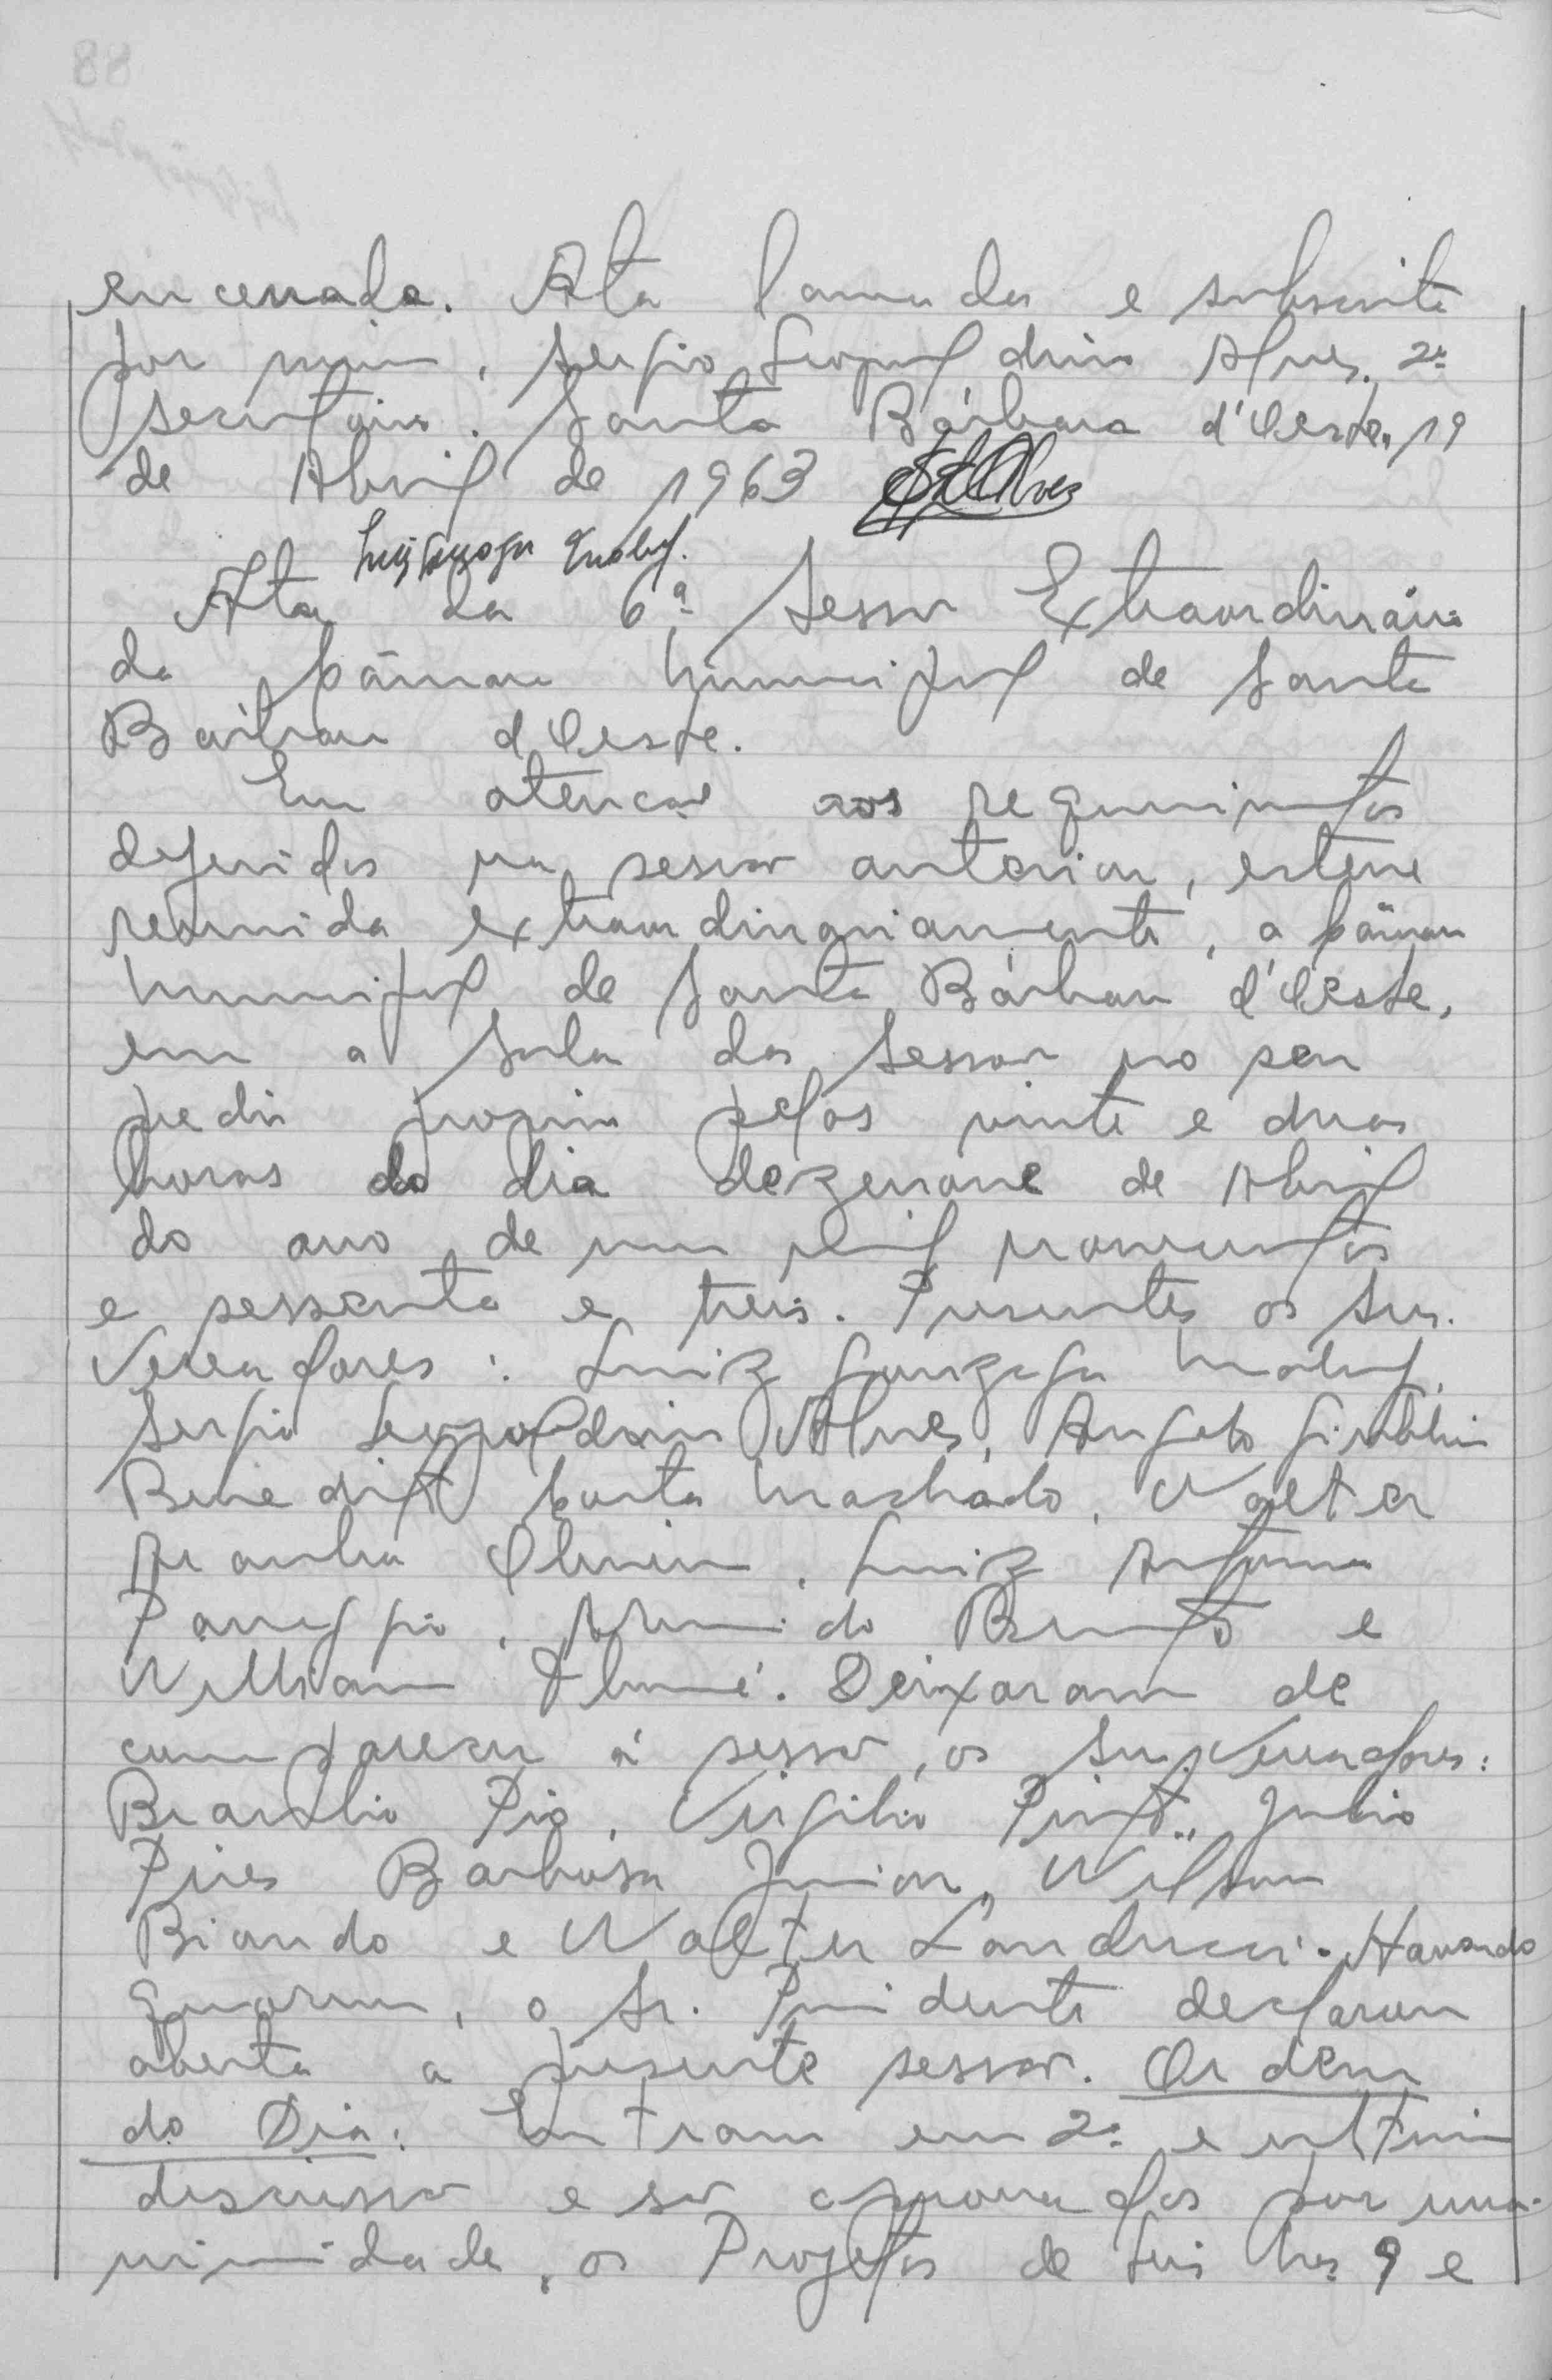 encerrada. Ata lavrada e subscrita
por mim, Sergio Leopoldino Alves, 2º
secretário. Santa Bárbara d'Oeste, 19
de Abril de 1963 SLAlves
Luiz Gonzaga Maluf.
Ata da 6ª Sessão Extraordinária
da Câmara Municipal de Santa
Bárbara d'Oeste.
Em atenção aos requerimentos
deferidos na sessão anterior, esteve
reunida extraordinariamente, a Câmara
Municipal de Santa Bárbara d'Oeste,
em a Sala das Sessões no seu
predio proprio pelas vinte e duas
horas do dia dezenove de Abril
do ano de um mil novecentos
e sessenta e treis. Presentes os Srs.
Vereadores: Luiz Gonzaga Maluf,
Sergio Leopoldino Alves, Angelo Giubbina
Benedito Costa Machado, Walter
Aranha Oliveira, Luiz Antonio
Panaggio, Armindo Bento e
William
Deixaram de
comparecer á sessão, os Srs. Vereadores:
Braulio Pio, Virgilio Pinto, Julio
Pires Barbosa Junior, Wilson
Biando e Walter Landucci. Havendo
quorum, o Sr. Presidente declarou
aberta a presente sessão. Ordem
do Dia: Entram em 2ª e ultima
discussão e são aprovados por una-
nimidade, os Projetos de Leis Nos. 9 e